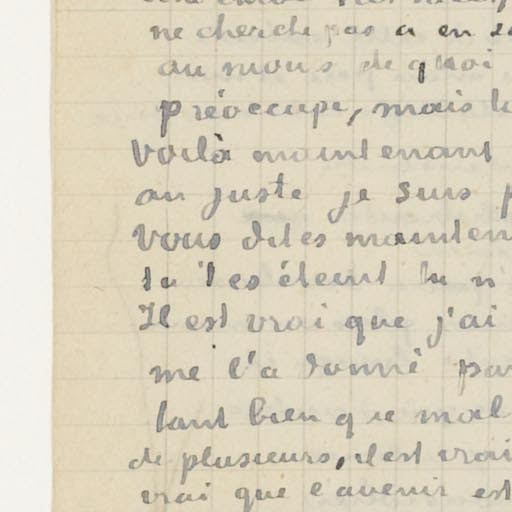 ne cherche pas a en
au moins de quoi
préoccupe, mais
Voilà maintenant
au juste je suis
Vous dites mainten
tu t'es éteint tu n
Il est vrai que j'ai
me l'a donné par
tant bien que mal
de plusieurs, il est vrai
vrai que l'avenir est